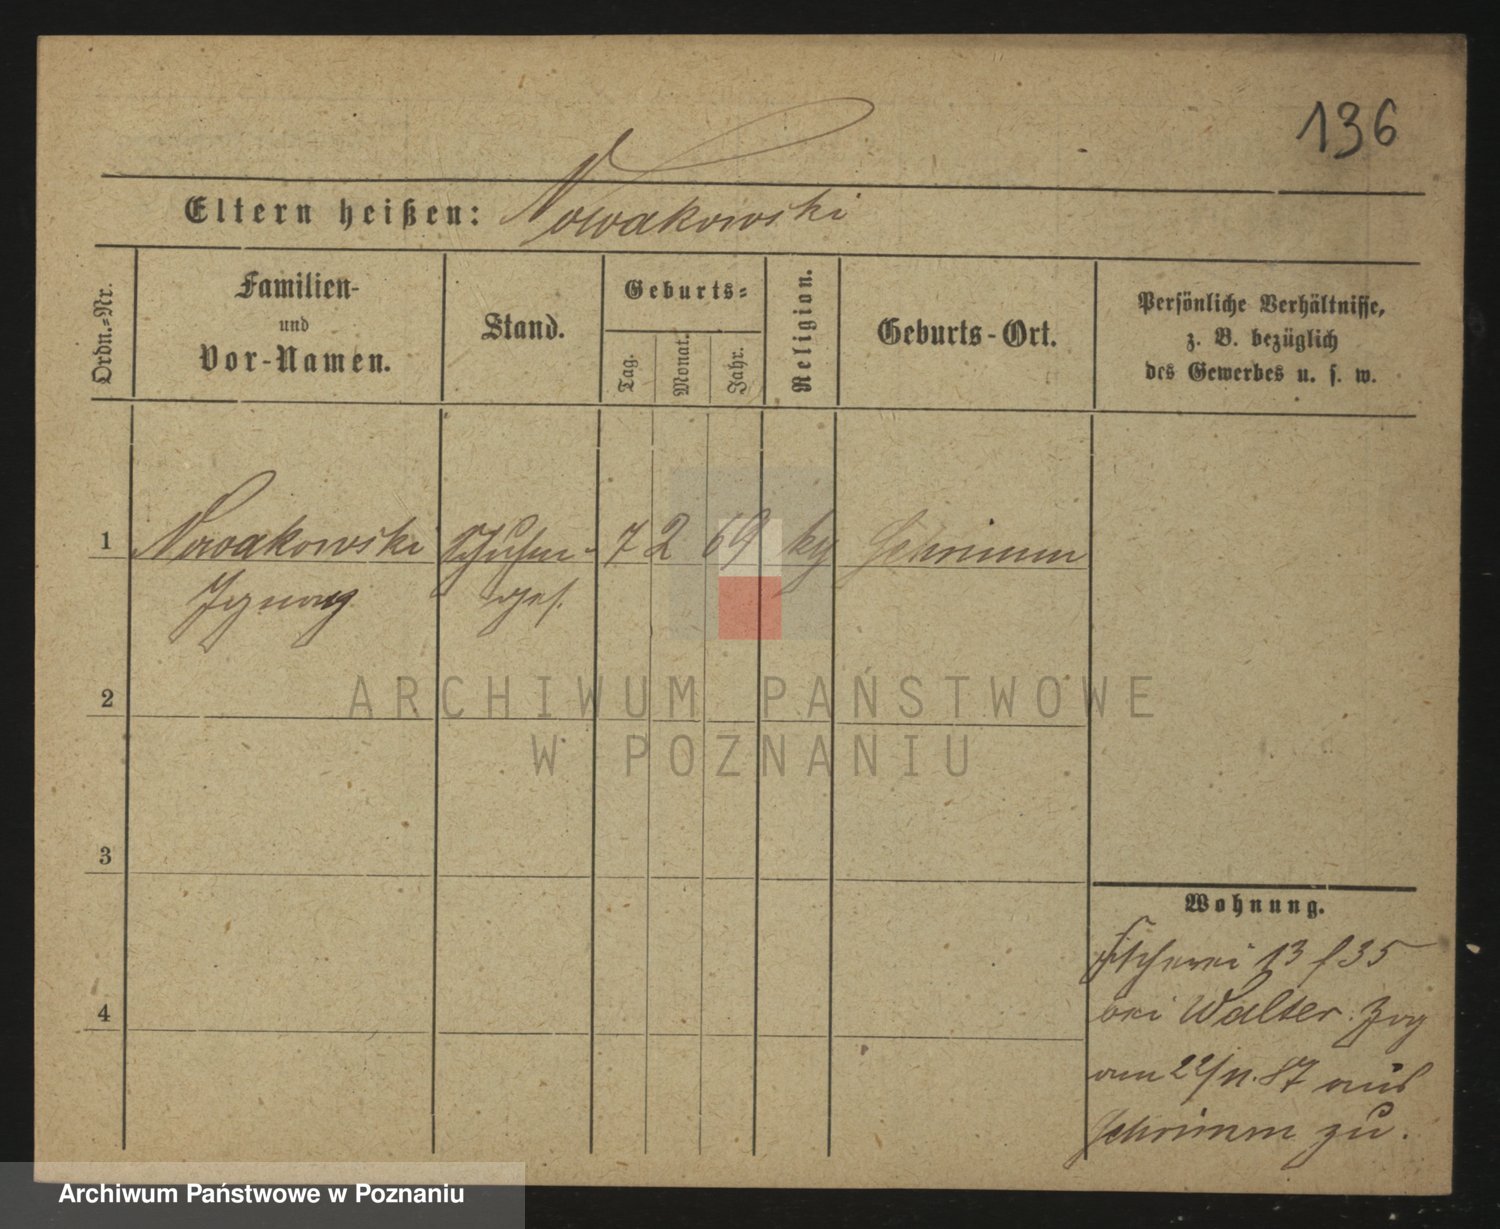 136
Eltern heißen: Nowakowski
Ordn.-Nr.
Familien-
und
Vor-Namen.
Stand.
Geburts-
Tag.
Monat.
Jahr.
Religion.
Geburts-Ort.
Persönliche Verhältnisse,
z. B. bezüglich
des Gewerbes u. s. w.
1 Nowakowski Schuhm- 7 2 69 Schrimm
Ignatz ges.
2
3
4
Wohnung.
Fischerei 13 35
bei Walter. Zog
am 22/11. 87 aus
Schrimm zu.
ARCHIWUM PAŃSTWOWE
W POZNANIU
Archiwum Państwowe w Poznaniu